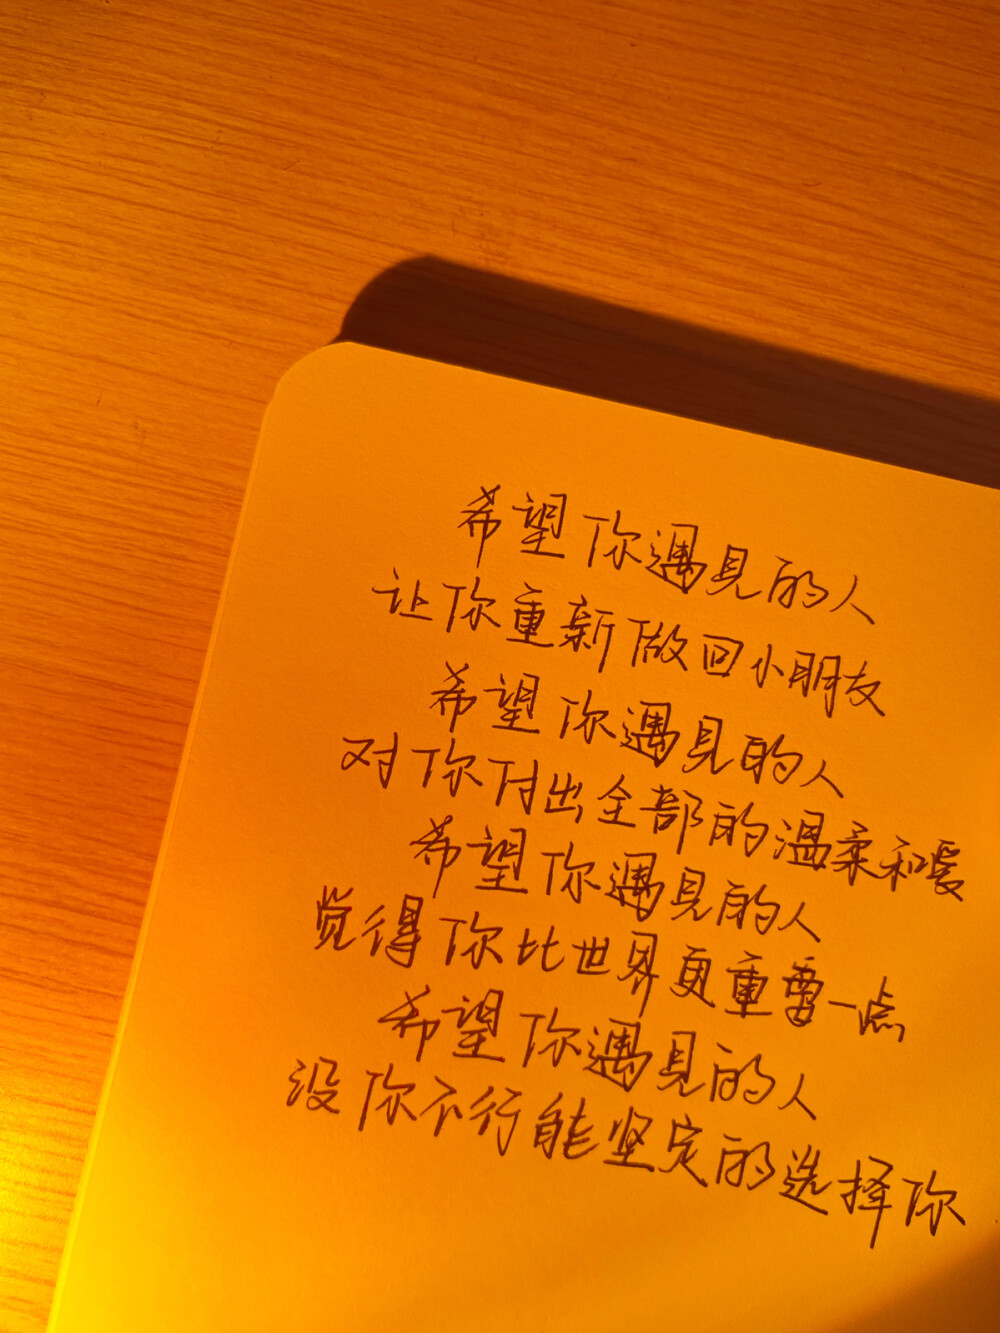 希望你遇见的人
让你重新做回小朋友
希望你遇见的人
对你付出全部的温柔和爱
希望你遇见的人
觉得你比世界更重要一点
希望你遇见的人
没你不行能坚定的选择你